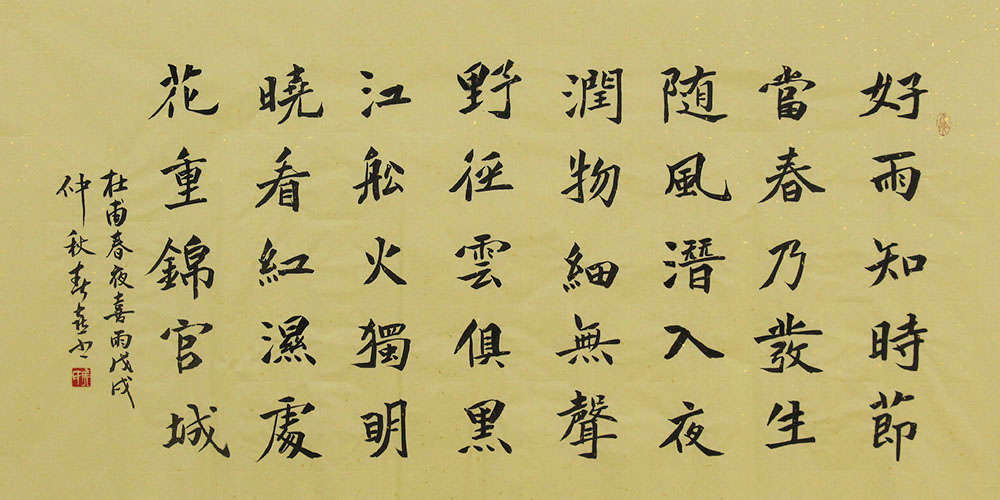 好雨知時節
當春乃發生
随風潛入夜
潤物細無聲
野徑雲俱黑
江船火獨明
曉看紅濕處
花重錦官城
杜甫春夜喜雨戊戌
仲秋春喜书